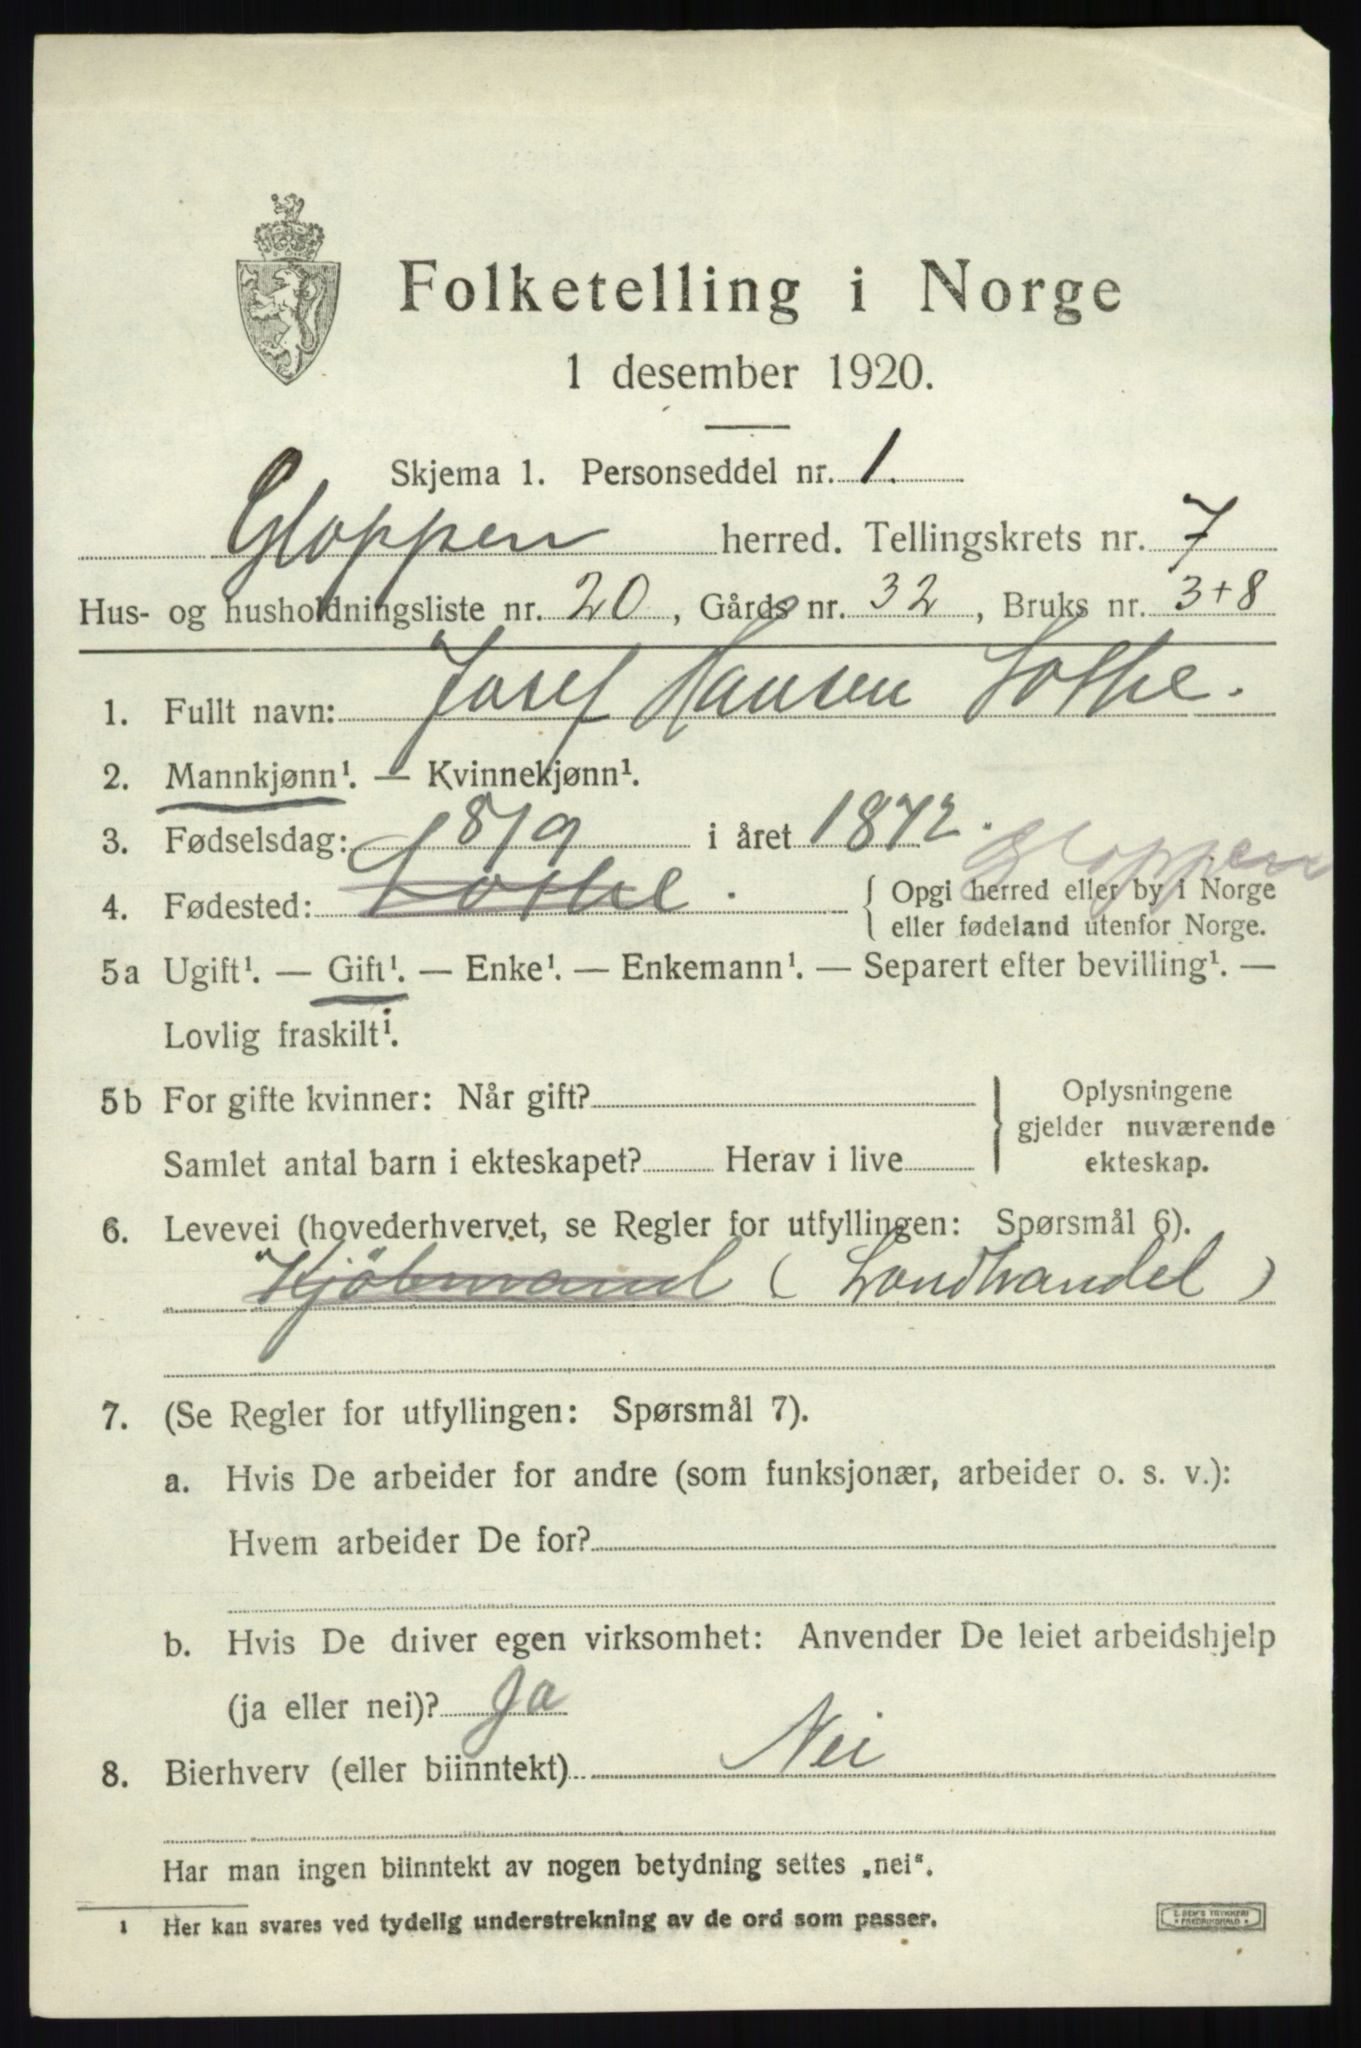 Folketelling i Norge
1 desember 1920.
Skjema 1. Personseddel nr. 1.
Gloppen herred. Tellingskrets nr. 7
Hus- og husholdningsliste nr. 20, Gårds nr. 32, Bruks nr. 3+8
1. Fullt navn: Josef Hansen Lothe.
2. Mannkjønn¹. — Kvinnekjønn¹.
3. Fødselsdag: 8/9 i året 1872.
Gloppen
4. Fødested: Lothe. { Opgi herred eller by i Norge
eller fødeland utenfor Norge.
5a Ugift¹. — Gift¹. — Enke¹. — Enkemann¹. — Separert efter bevilling¹. —
Lovlig fraskilt¹.
5b For gifte kvinner: Når gift? } Oplysningene
gjelder nuværende
Samlet antal barn i ekteskapet? Herav i live ekteskap.
6. Levevei (hovederhvervet, se Regler for utfyllingen: Spørsmål 6).
Kjöbmand (Landhandel)
7. (Se Regler for utfyllingen: Spørsmål 7).
a. Hvis De arbeider for andre (som funksjonær, arbeider o. s. v.):
Hvem arbeider De for?
b. Hvis De driver egen virksomhet: Anvender De leiet arbeidshjelp
(ja eller nei)? Ja
8. Bierhverv (eller biinntekt) Nei
Har man ingen biinntekt av nogen betydning settes „nei“.
¹ Her kan svares ved tydelig understrekning av de ord som passer.
E. SEM'S TRYKKERI
FREDRIKSHALD